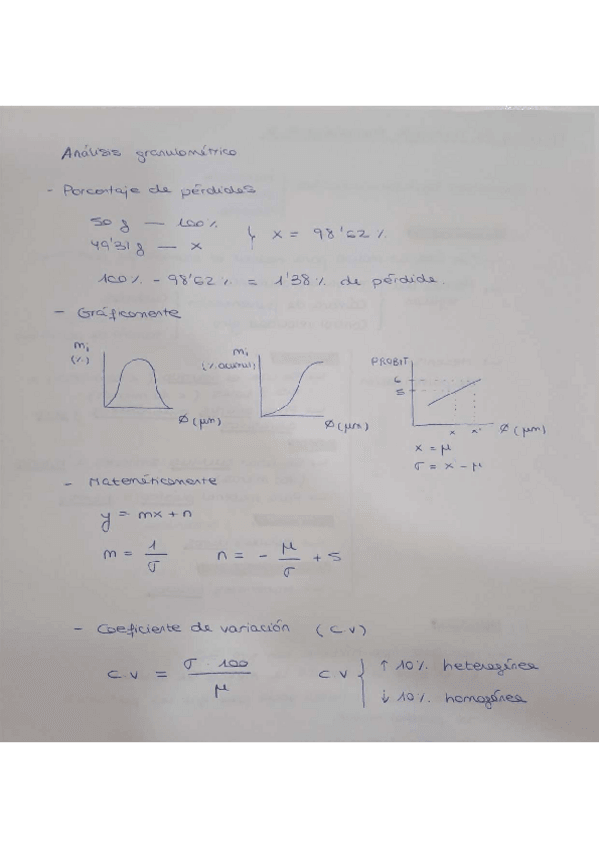 Análisis granulométrico
- Porcentaje de pérdidas
50 g — 100%
49'31 g — x
x = 98'62 %
100% - 98'62 % = 1'38% de pérdida.
- Gráficamente
mi (%)
Ø (μm)
mi (% acumul)
Ø (μm)
PROBIT
6
5
x x'
Ø (μm)
x = μ
σ = x - μ
- Matemáticamente
y = mx + n
m = 1/σ n = - μ/σ + 5
- Coeficiente de variación (C.V)
C.V = σ · 100 / μ
CV { ↑ 10% heterogénea
↓ 10% homogénea